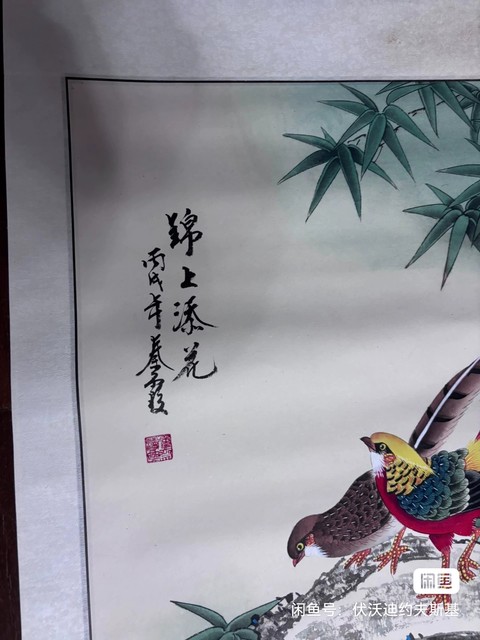 錦上添花
丙戌年秦霞
闲鱼
闲鱼号：伏沃迪约夫斯基